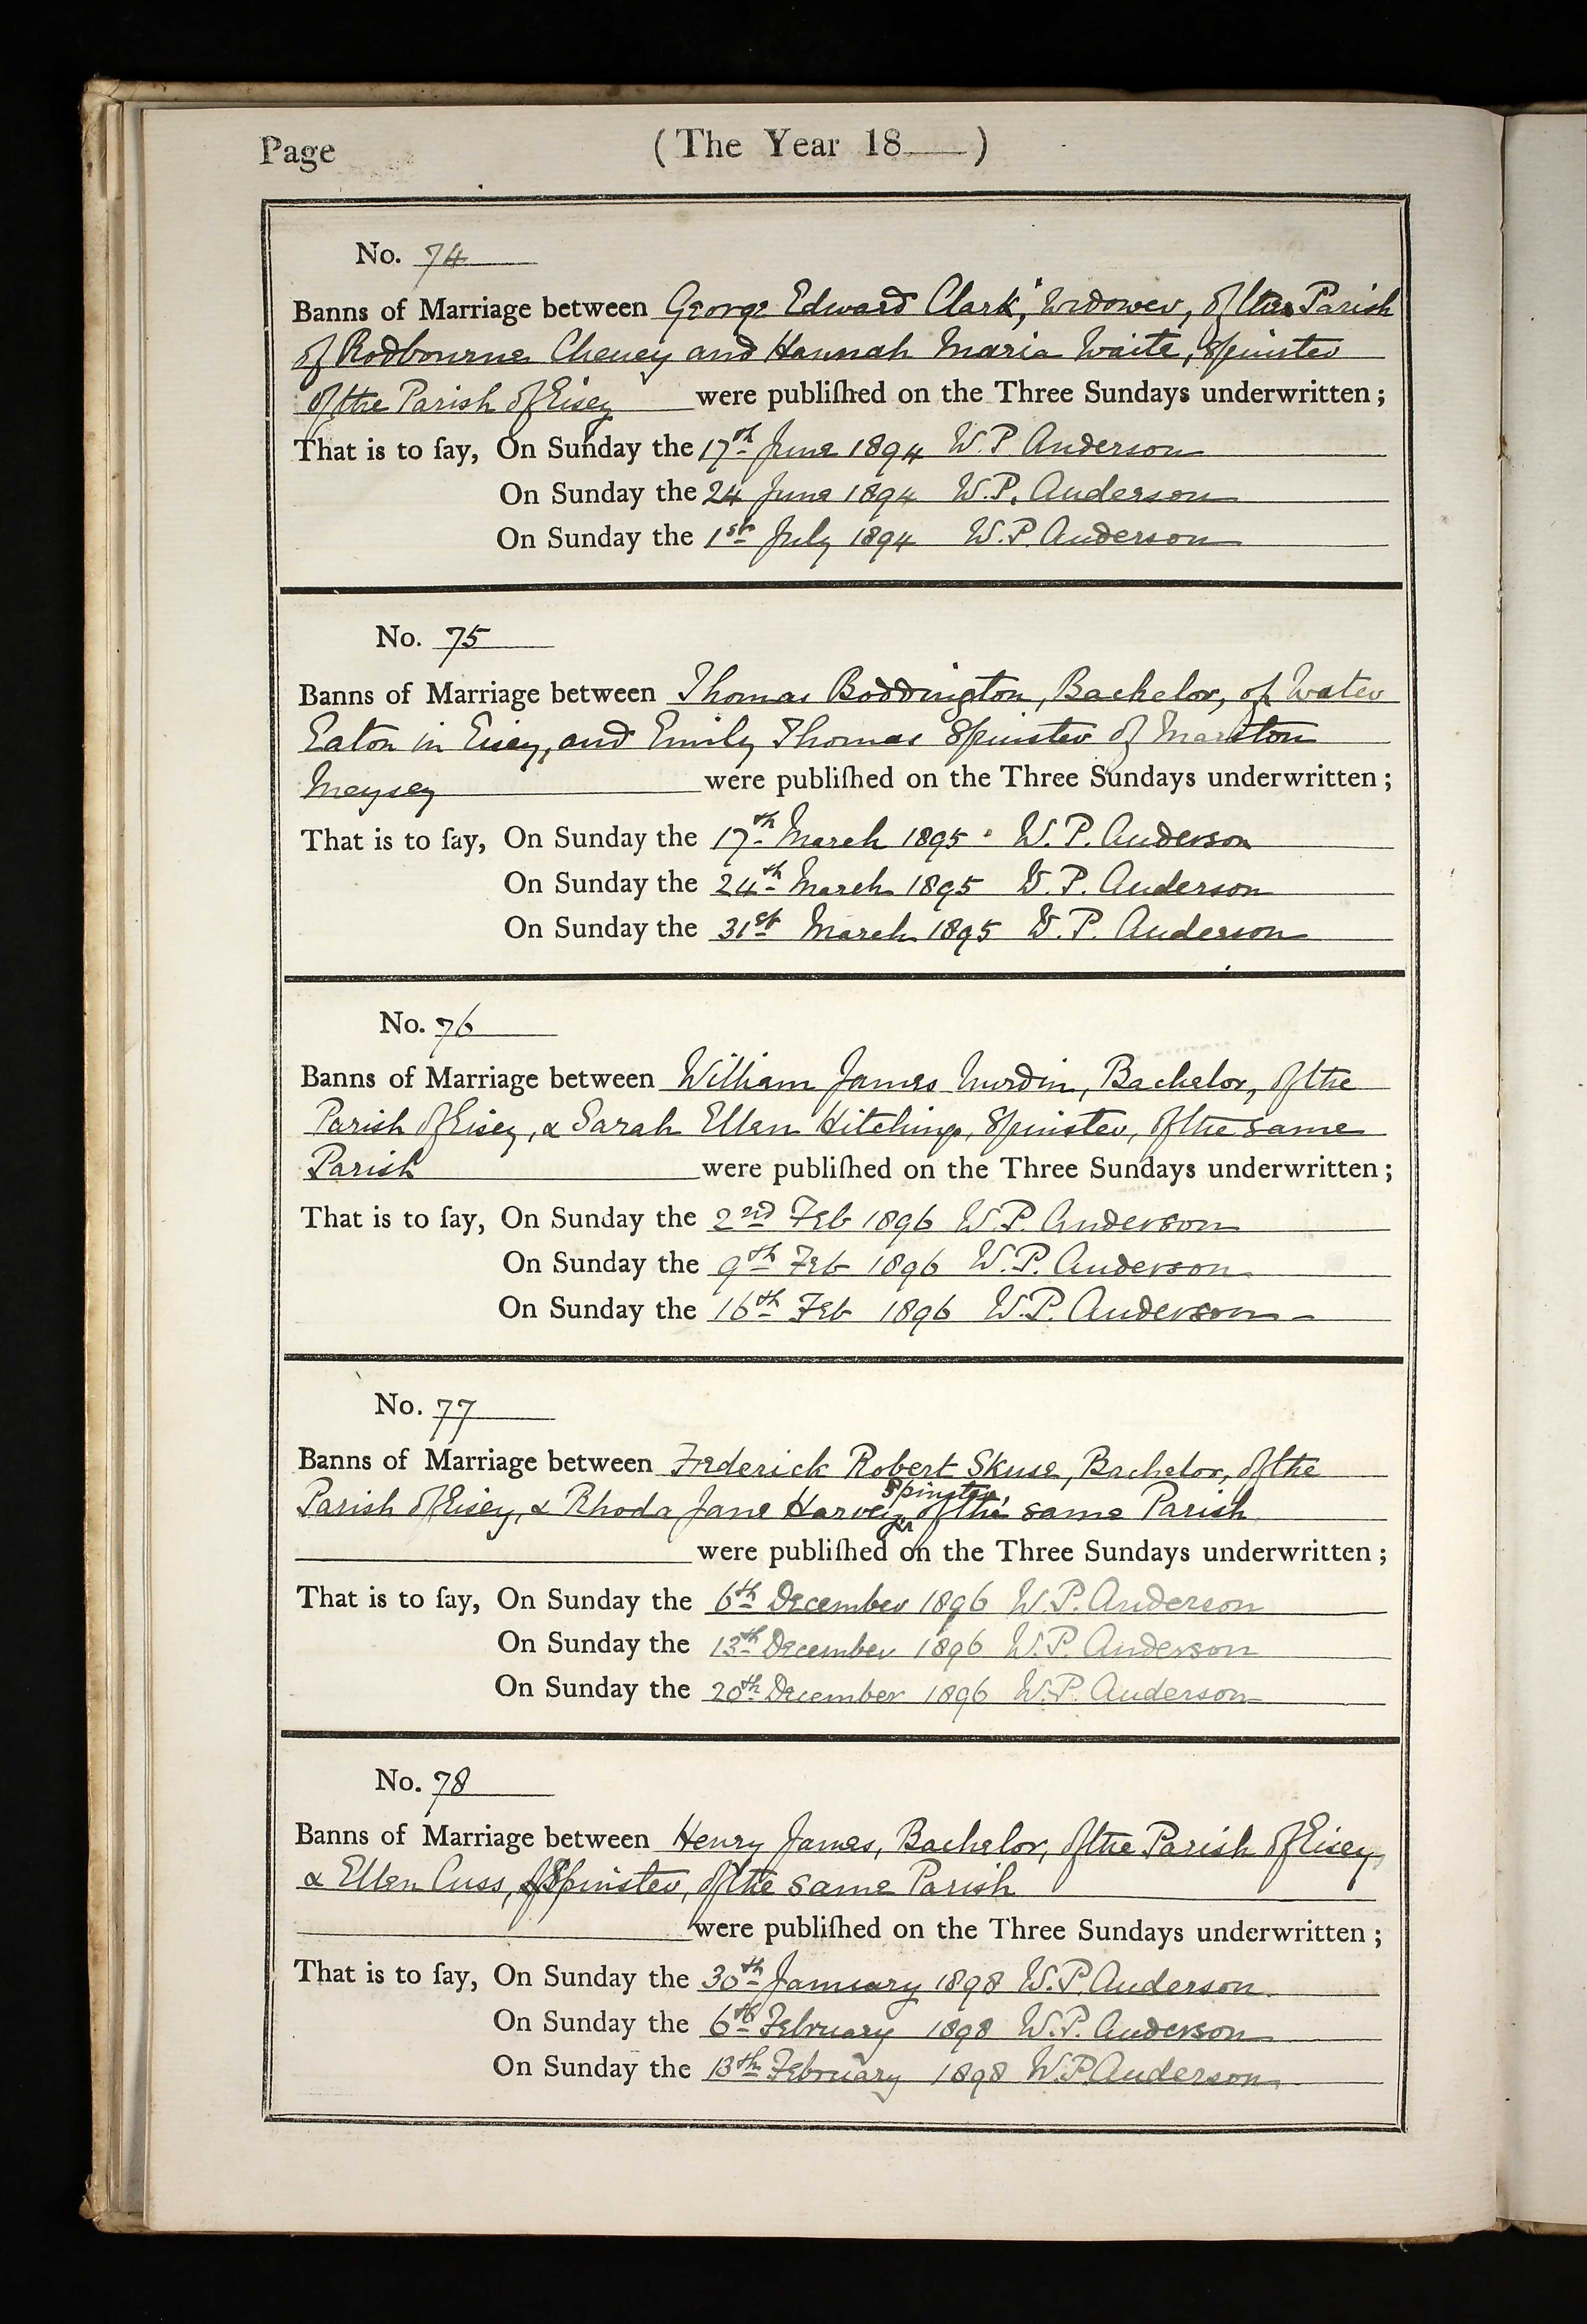 Page (The Year 18 )
No. 74
Banns of Marriage between George Edward Clark, Widower, of the Parish
of Rodbourne Cheney and Hannah Maria Waite, Spinster
of the Parish of Eisey were publiſhed on the Three Sundays underwritten;
That is to ſay, On Sunday the 17th June 1894 W. P. Anderson
On Sunday the 24 June 1894 W. P. Anderson
On Sunday the 1st July 1894 W. P. Anderson
No. 75
Banns of Marriage between Thomas Boddington, Bachelor, of Water
Eaton in Eisey, and Emily Thomas Spinster of Marston
Meysey were publiſhed on the Three Sundays underwritten;
That is to ſay, On Sunday the 17th March 1895 W. P. Anderson
On Sunday the 24th March 1895 W. P. Anderson
On Sunday the 31st March 1895 W. P. Anderson
No. 76
Banns of Marriage between William James Nurdin, Bachelor, of the
Parish of Eisey, & Sarah Ellen Hitchings, Spinster, of the same
Parish were publiſhed on the Three Sundays underwritten;
That is to ſay, On Sunday the 2nd Feb 1896 W. P. Anderson
On Sunday the 9th Feb 1896 W. P. Anderson
On Sunday the 16th Feb 1896 W. P. Anderson
No. 77
Banns of Marriage between Frederick Robert Skuse, Bachelor, of the
Spinster,
Parish of Eisey, & Rhoda Jane Harvey of the same Parish
were publiſhed on the Three Sundays underwritten;
That is to ſay, On Sunday the 6th December 1896 W. P. Anderson
On Sunday the 13th December 1896 W. P. Anderson
On Sunday the 20th December 1896 W. P. Anderson
No. 78
Banns of Marriage between Henry James, Bachelor, of the Parish of Eisey,
& Ellen Cuss, Spinster, of the same Parish
were publiſhed on the Three Sundays underwritten;
That is to ſay, On Sunday the 30th January 1898 W. P. Anderson
On Sunday the 6th February 1898 W. P. Anderson
On Sunday the 13th February 1898 W. P. Anderson